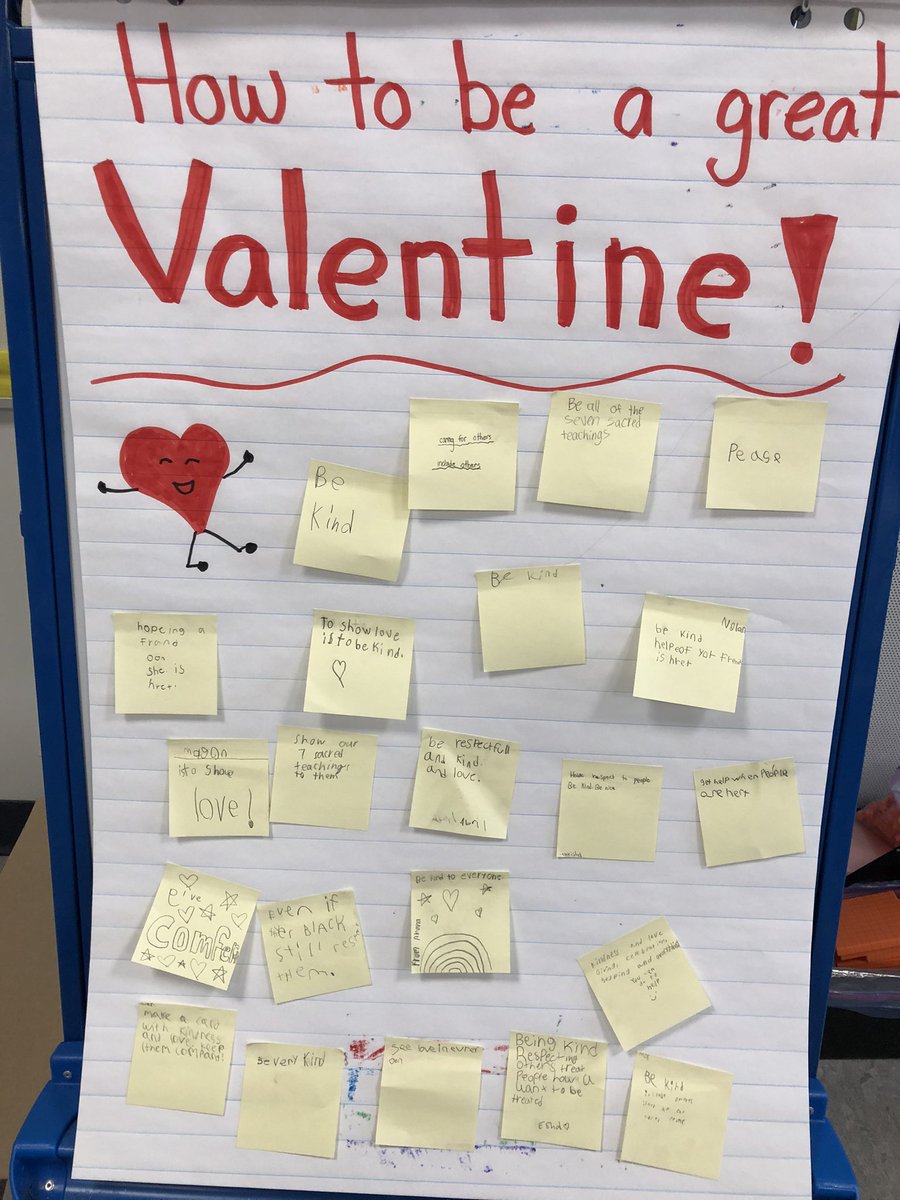 How to be a great
Valentine!
Be
Kind
caring for others
include others
Be all of the
seven sacred
teachings
Pease
hopeing a
Frand
oan
she is
hret.
To show love
is to be kind.
Be kind
Nolan
be kind
helpeof yor Frand
is hret
mason
is to show
love!
Show our
7 sacred
teachings
to them
be respectfull
and kind.
and love.
April
Have respect to people
Be kind Be nice
get help when People
are hert
Give
Comfert
Even if
ther Black
still rest
them.
Be kind to everyone
from Ariana
Kindness and love
Giving
helping and
you can
do to
help
make a card
with kindness
and love keep
them company!
Be very kind
See love in evrer
oan
Being kind
Respecting
other's treat
People how U
want to be
treated
Be kind